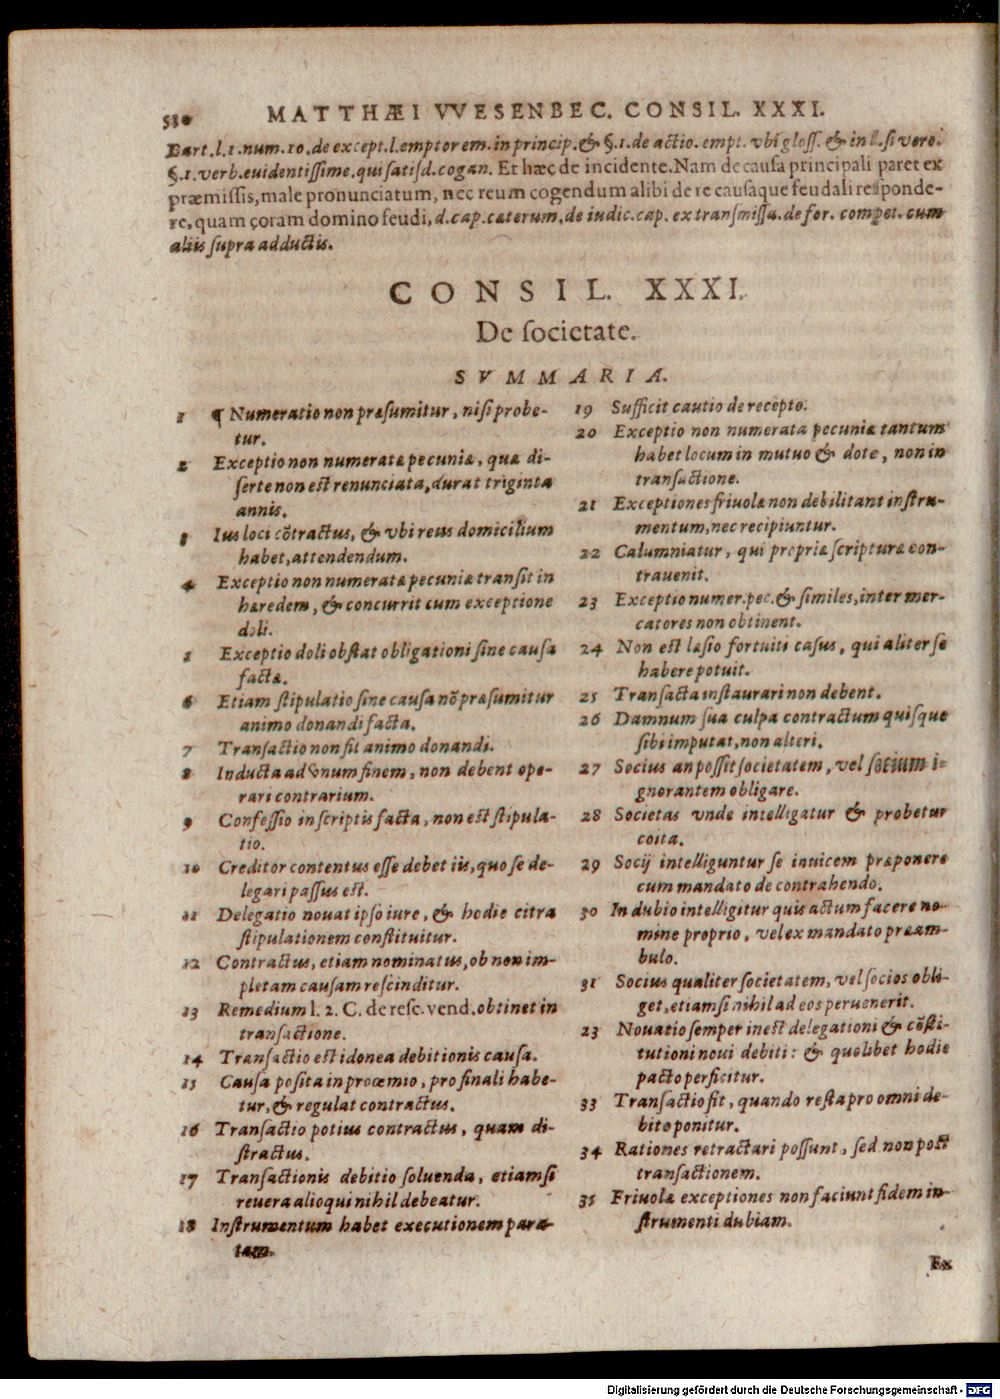 MATTHÆI VVESENBEC. CONSIL. XXXI.
Bart.l.1.num.10.de except.l.emptorem.in princip.& §.1.de actio.empt.vbi gloss. & in ll.si vero.
§.1.verb.euidentissime.qui satisd.cogan. Et hæc de incidente.Nam de causa principali paret ex
præmissis,male pronunciatum, nec reum cogendum alibi de re causaque feudali responde-
re,quam coram domino feudi,d.cap.cæterum.de iudic.cap. ex transmissa.de for. compet. cum
aliis supra adductis.
CONSIL. XXXI.
De societate.
SVMMARIA.
1 ¶ Numeratio non præsumitur, nisi probe-
tur.
2 Exceptio non numeratæ pecuniæ, quæ di-
serte non est renunciata, durat triginta
annis.
3 Ius loci cõtractus, & vbi reus domicilium
habet,attendendum.
4 Exceptio non numeratæ pecuniæ transit in
hæredem, & concurrit cum exceptione
doli.
5 Exceptio doli obstat obligationi sine causa
factæ.
6 Etiam stipulatio sine causa nõ præsumitur
animo donandi facta.
7 Transactio non fit animo donandi.
8 Inducta ad vnum finem, non debent ope-
rari contrarium.
9 Confessio in scriptis facta, non est stipula-
tio.
10 Creditor contentus esse debet iis, quo se de-
legari passus est.
11 Delegatio nouat ipso iure, & hodie citra
stipulationem constituitur.
12 Contractus, etiam nominatus, ob non im-
pletam causam rescinditur.
13 Remedium l. 2. C. de resc. vend. obtinet in
transactione.
14 Transactio est idonea debitionis causa.
15 Causa posita in proœmio, pro finali habe-
tur, & regulat contractus.
16 Transactio potius contractus, quam di-
stractus.
17 Transactionis debitio soluenda, etiamsi
reuera alioqui nihil debeatur.
18 Instrumentum habet executionem para-
tam.
19 Sufficit cautio de recepto.
20 Exceptio non numerata pecuniæ tantum
habet locum in mutuo & dote, non in
transactione.
21 Exceptiones friuolæ non debilitant instru-
mentum,nec recipiuntur.
22 Calumniatur, qui propriæ scripturæ con-
trauenit.
23 Exceptio numer.pec.& similes,inter mer-
catores non obtinent.
24 Non est læsio fortuiti casus, qui aliter se
habere potuit.
25 Transacta instaurari non debent.
26 Damnum sua culpa contractum quisque
sibi imputat,non alteri.
27 Socius an possit societatem, vel socium i-
gnorantem obligare.
28 Societas vnde intelligatur & probetur
coita.
29 Socij intelliguntur se inuicem præponere
cum mandato de contrahendo.
30 In dubio intelligitur quis actum facere no-
mine proprio, vel ex mandato præam-
bulo.
31 Socius qualiter societatem, vel socios obli-
get,etiamsi nihil ad eos peruenerit.
23 Nouatio semper inest delegationi & cõsti-
tutioni noui debiti: & quolibet hodie
pacto perficitur.
33 Transactio fit, quando res ta pro omni de-
bito ponitur.
34 Rationes retractari possunt, sed non post
transactionem.
35 Friuolæ exceptiones non faciunt fidem in-
strumenti dubiam.
Ex
Digitalisierung gefördert durch die Deutsche Forschungsgemeinschaft - DFG